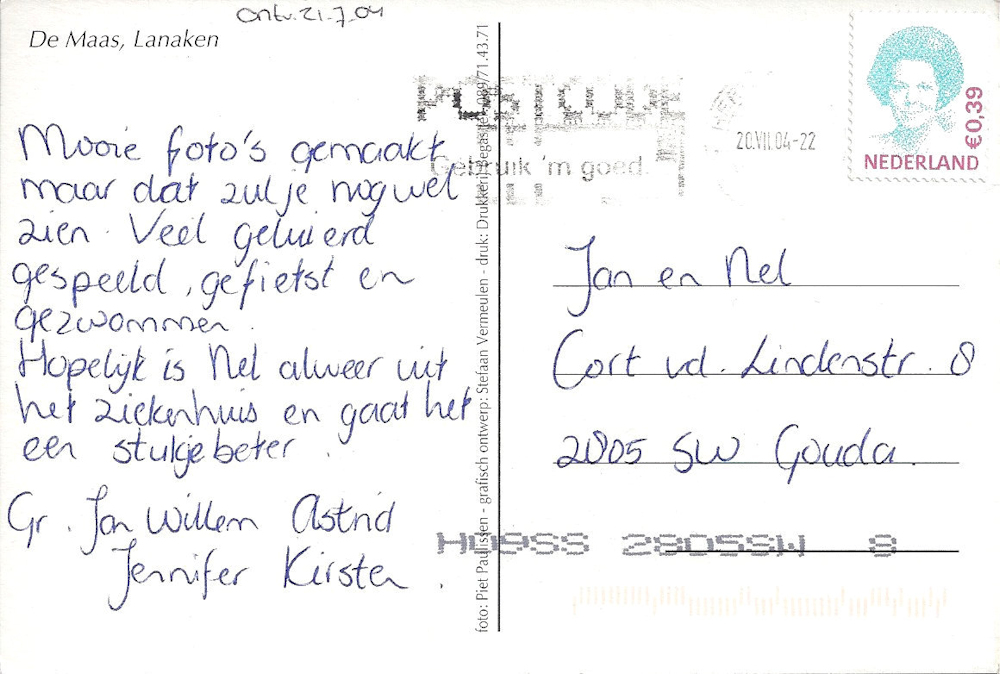 ontv. 21-7-04
De Maas, Lanaken
Mooie foto's gemaakt
maar dat zul je nog wel
zien. Veel geluierd
gespeeld, gefietst en
gezwommen.
Hopelijk is Nel alweer uit
het ziekenhuis en gaat het
een stukje beter.
Gr. Jan Willem Astrid
Jennifer Kirsten.
foto: Piet Paulissen - grafisch ontwerp: Stefaan Vermeulen - druk: Drukkerij Segasite 089/71.43.71
Gebruik 'm goed.
20.VII.04-22
€0,39
NEDERLAND
Jan en Nel
Cort vd. Lindenstr. 8
2805 SW Gouda.
H09SS 2805SW 8